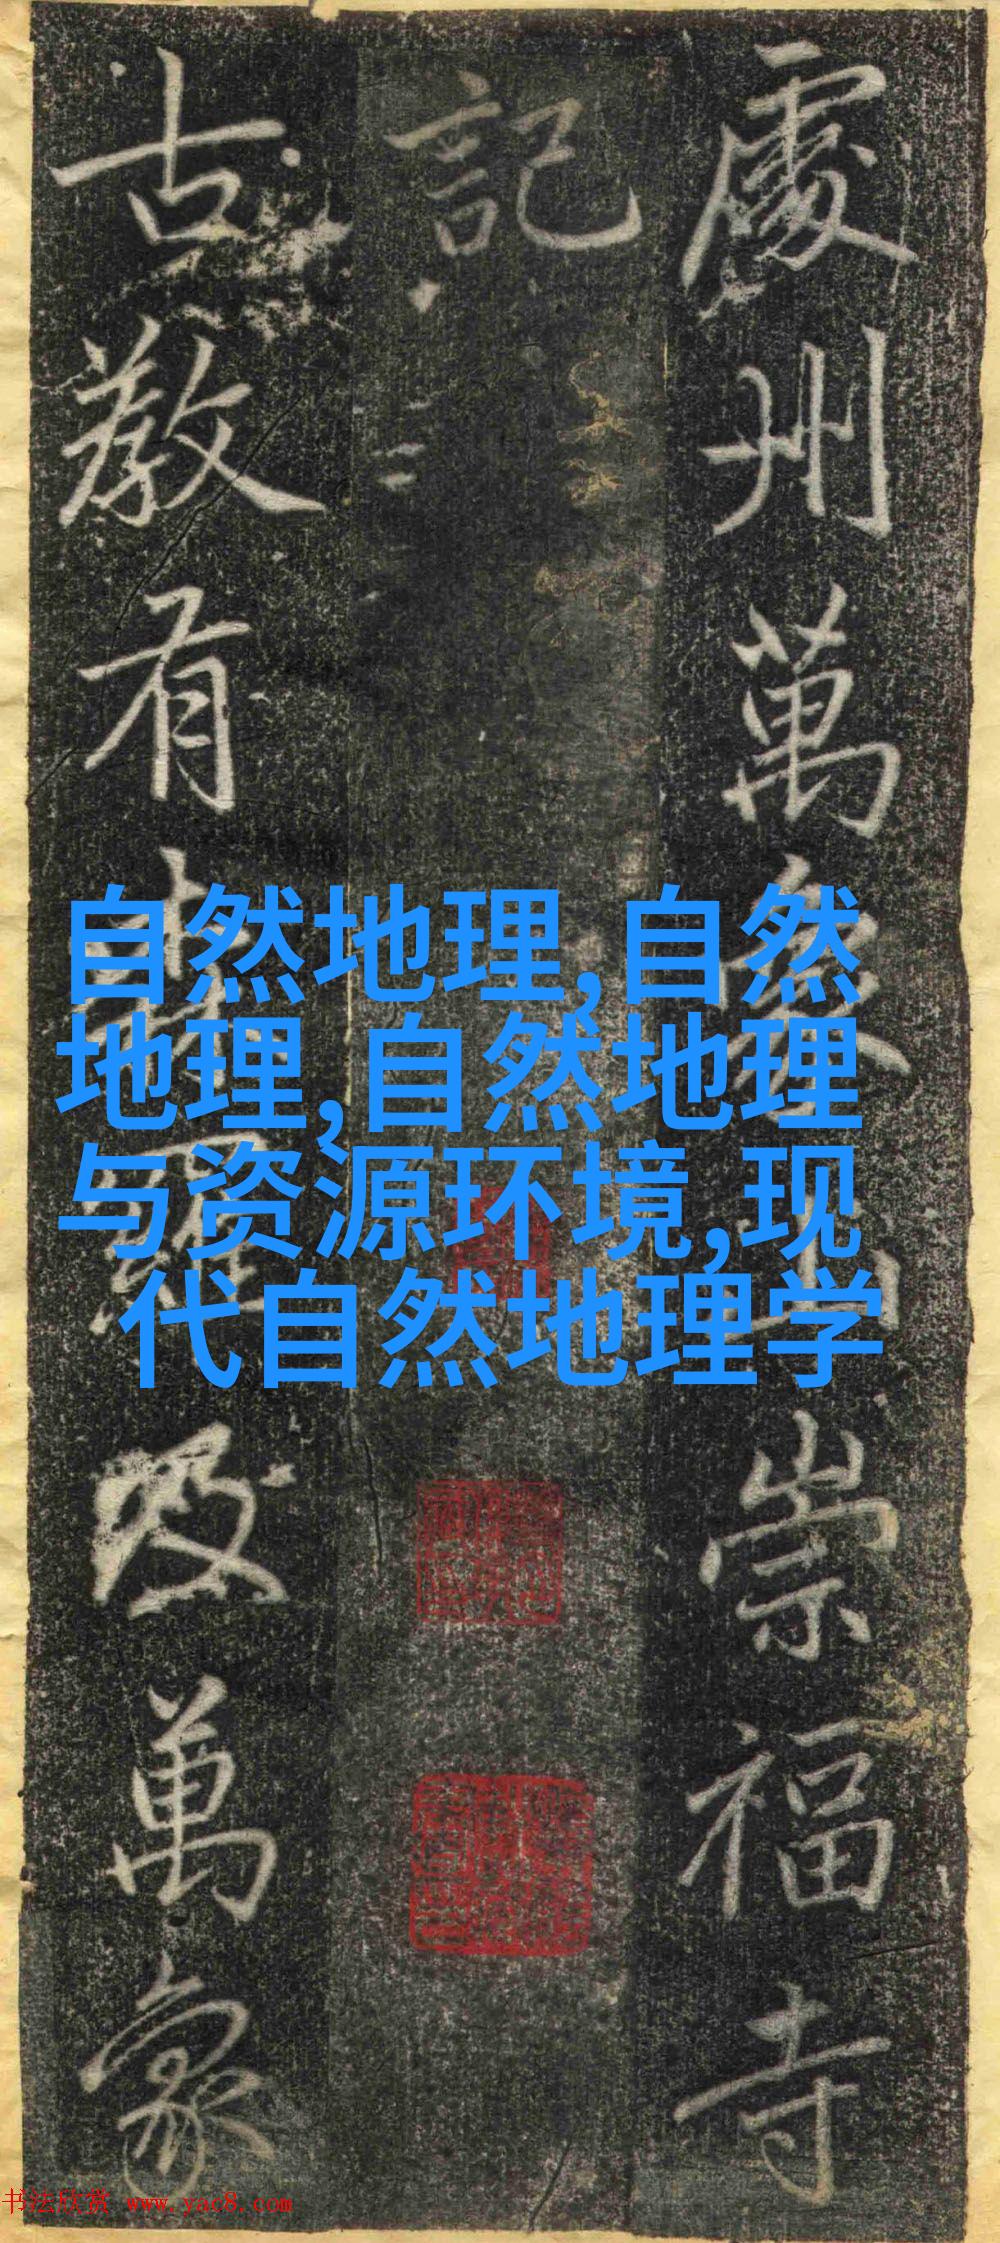 處州萬象山崇福寺
記
古教有羅及萬象
自然地理,自然
地理,自然地理
与资源环境,现
代自然地理学
书法欣赏 www.yac8.com